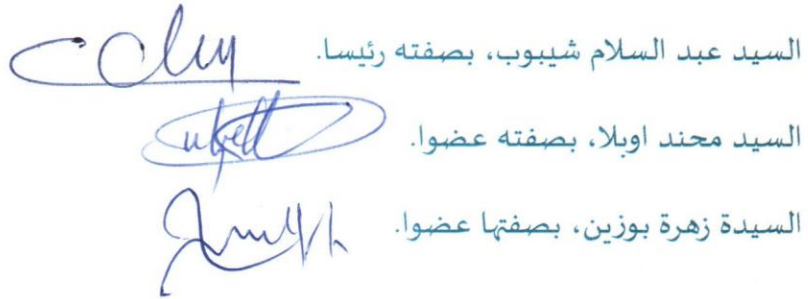 السيد عبد السلام شيبوب، بصفته رئيسا.
السيد محند اوبلا، بصفته عضوا.
السيدة زهرة بوزين، بصفتها عضوا.